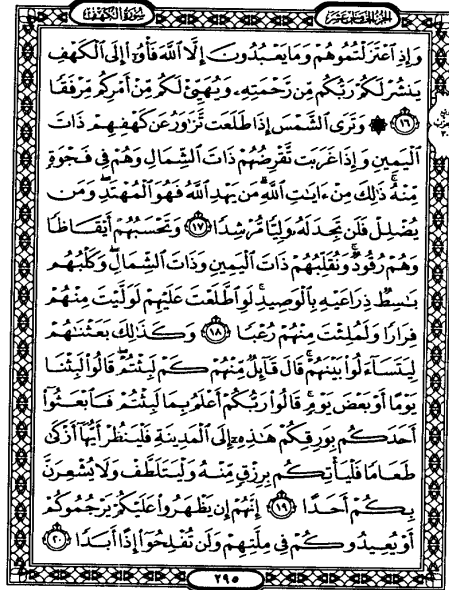 سورة الكهف
الجزء الخامس عشر
وَإِذِ ٱعْتَزَلْتُمُوهُمْ وَمَا يَعْبُدُونَ إِلَّا ٱللَّهَ فَأْوُۥٓا۟ إِلَى ٱلْكَهْفِ
يَنشُرْ لَكُمْ رَبُّكُم مِّن رَّحْمَتِهِۦ وَيُهَيِّئْ لَكُم مِّنْ أَمْرِكُم مِّرْفَقًا
﴿١٦﴾ ۞ وَتَرَى ٱلشَّمْسَ إِذَا طَلَعَت تَّزَٰوَرُ عَن كَهْفِهِمْ ذَاتَ
ٱلْيَمِينِ وَإِذَا غَرَبَت تَّقْرِضُهُمْ ذَاتَ ٱلشِّمَالِ وَهُمْ فِى فَجْوَةٍ
مِّنْهُ ۚ ذَٰلِكَ مِنْ ءَايَٰتِ ٱللَّهِ ۗ مَن يَهْدِ ٱللَّهُ فَهُوَ ٱلْمُهْتَدِ ۖ وَمَن
يُضْلِلْ فَلَن تَجِدَ لَهُۥ وَلِيًّا مُّرْشِدًا ﴿١٧﴾ وَتَحْسَبُهُمْ أَيْقَاظًا
وَهُمْ رُقُودٌ ۚ وَنُقَلِّبُهُمْ ذَاتَ ٱلْيَمِينِ وَذَاتَ ٱلشِّمَالِ ۖ وَكَلْبُهُم
بَٰسِطٌ ذِرَاعَيْهِ بِٱلْوَصِيدِ ۚ لَوِ ٱطَّلَعْتَ عَلَيْهِمْ لَوَلَّيْتَ مِنْهُمْ
فِرَارًا وَلَمُلِئْتَ مِنْهُمْ رُعْبًا ﴿١٨﴾ وَكَذَٰلِكَ بَعَثْنَٰهُمْ
لِيَتَسَآءَلُوا۟ بَيْنَهُمْ ۚ قَالَ قَآئِلٌ مِّنْهُمْ كَمْ لَبِثْتُمْ ۖ قَالُوا۟ لَبِثْنَا
يَوْمًا أَوْ بَعْضَ يَوْمٍ ۚ قَالُوا۟ رَبُّكُمْ أَعْلَمُ بِمَا لَبِثْتُمْ فَٱبْعَثُوٓا۟
أَحَدَكُم بِوَرِقِكُمْ هَٰذِهِۦٓ إِلَى ٱلْمَدِينَةِ فَلْيَنظُرْ أَيُّهَآ أَزْكَىٰ
طَعَامًا فَلْيَأْتِكُم بِرِزْقٍ مِّنْهُ وَلْيَتَلَطَّفْ وَلَا يُشْعِرَنَّ
بِكُمْ أَحَدًا ﴿١٩﴾ إِنَّهُمْ إِن يَظْهَرُوا۟ عَلَيْكُمْ يَرْجُمُوكُمْ
أَوْ يُعِيدُوكُمْ فِى مِلَّتِهِمْ وَلَن تُفْلِحُوٓا۟ إِذًا أَبَدًا ﴿٢٠﴾
٢٩٥